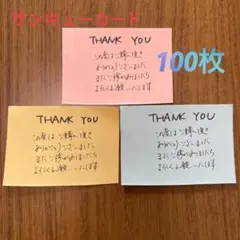 サンキューカード
100枚
THANK YOU
この度はご購入頂き
ありがとうございました
またご縁がありましたら
よろしくお願いいたします
THANK YOU
この度はご購入頂き
ありがとうございました
またご縁がありましたら
よろしくお願いいたします
THANK YOU
この度はご購入頂き
ありがとうございました
またご縁がありましたら
よろしくお願いいたします